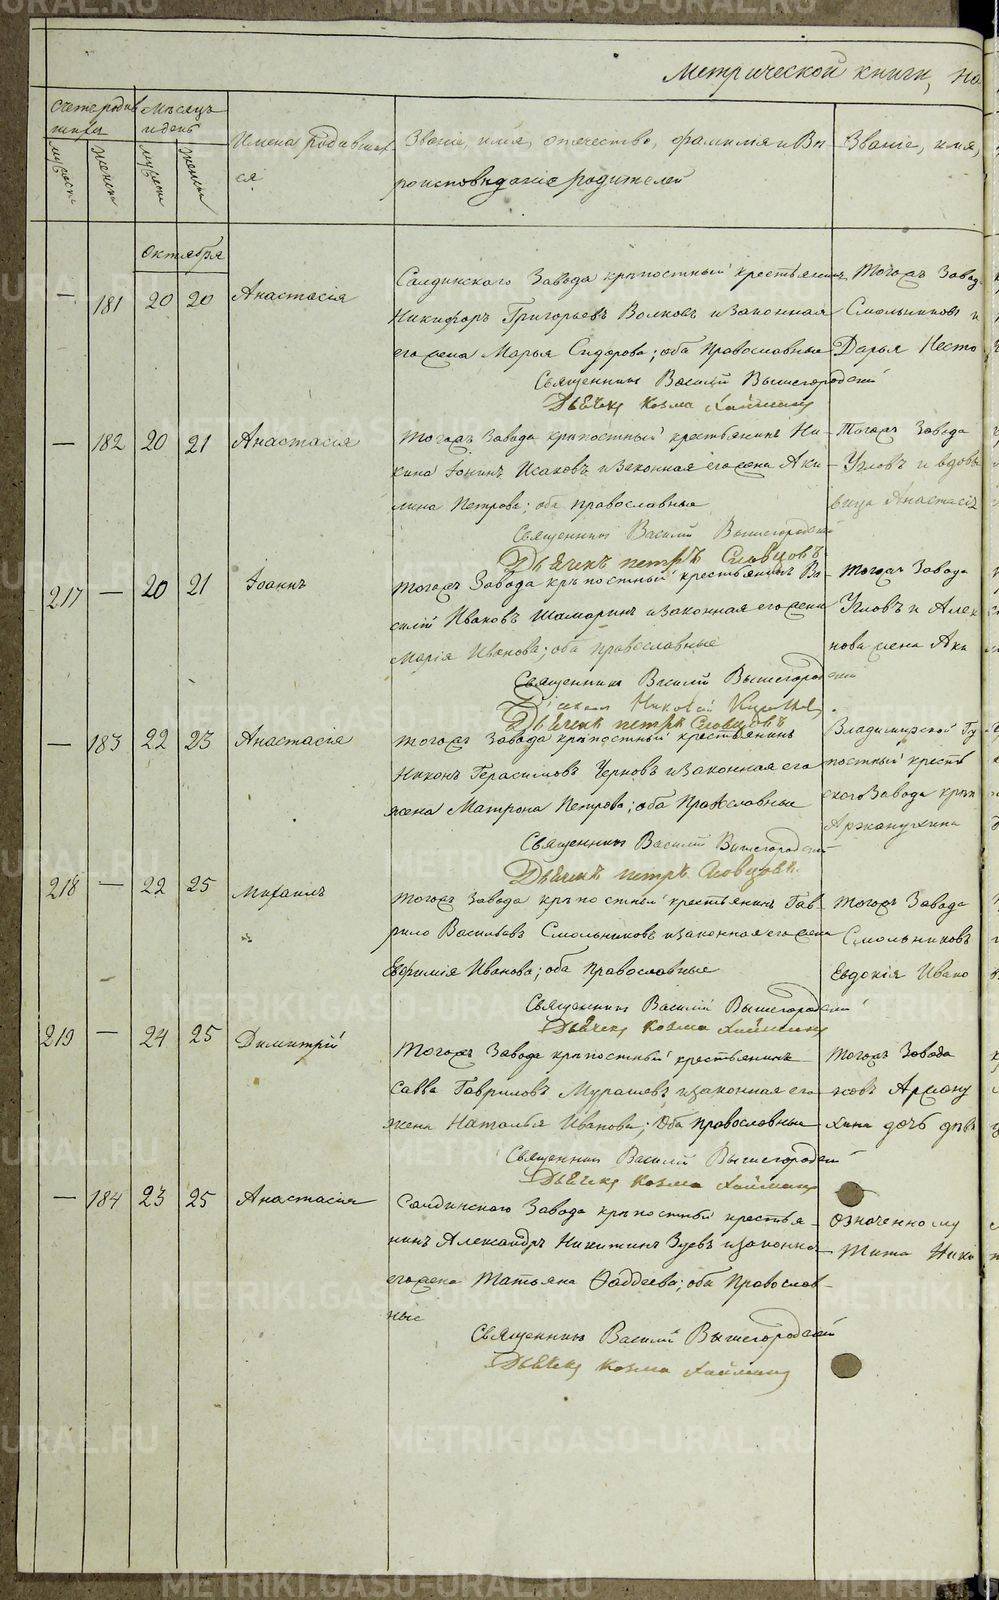 Метрической книги, на
Счетъ родив
шихся
Мѣсяцъ
и день
Имена родивших
ся
Званіе, имя, отечество, фамилія и Вѣ
роисповѣданіе родителей
Званіе, имя,
мужеск
женск
мужеск
женск
Октября
— 181 20 20 Анастасія
Салдинскаго Завода крѣпостный крестьянинъ
Никифоръ Григорьевъ Волковъ и законная
его жена Марья Сидорова; оба Православные
Священникъ Василій Вышегородскій
Дьячекъ Козма
Тогожъ Завода
Смольниковъ и
Дарья Несто
— 182 20 21 Анастасія
тогожъ Завода крѣпостный крестьянинъ Ни-
кита Исаковъ и законная его жена Аки-
лина Петрова; оба православные
Священникъ Василій Вышегородскій
Дьячекъ петръ Словцовъ
Тогожъ Завода
Угловъ и вдова
вица Анастасія
217 — 20 21 Іоаннъ
тогожъ Завода крѣпостный крестьянинъ Ва-
силій Ивановъ Шамаринъ и законная его жена
Марія Иванова; оба православные
Священникъ Василій Вышегородскій
Діаконъ Николай
Дьячекъ петръ Словцовъ
Тогожъ Завода
Угловъ и Алек
нова жена Аки
— 183 22 23 Анастасія
тогожъ Завода крѣпостный крестьянинъ
Никонъ Герасимовъ Черновъ и законная его
жена Матрона Петрова; оба Православные
Священникъ Василій Вышегородскій
Дьячекъ петръ Словцовъ
Владимирской Гу
постный кресть
скаго Завода крѣп
Аржанухина
218 — 22 25 Михаилъ
тогожъ Завода крѣпостный крестьянинъ Гав-
рило Васильевъ Смольниковъ и законная его жена
Евфимія Иванова; оба православные
Священникъ Василій Вышегородскій
Дьячекъ Козма
Тогожъ Завода
Смольниковъ
Евдокія Ивано
219 — 24 25 Димитрій
Тогожъ Завода крѣпостный крестьянинъ
Савва Гавриловъ Мурашевъ и законная его
жена Наталья Иванова; Оба православные
Священникъ Василій Вышегородскій
Дьячекъ Козма
Тогожъ Завода
ковъ Аржану
хина дочь дѣв
— 184 23 25 Анастасія
Салдинскаго Завода крѣпостный крестья-
нинъ Александръ Никитинъ Зуевъ и законная
его жена Татьяна Фаддеева; оба Православ-
ные
Священникъ Василій Вышегородскій
Дьячекъ Козма
Означенному
Тита Ники
METRIKI.GASO-URAL.RU